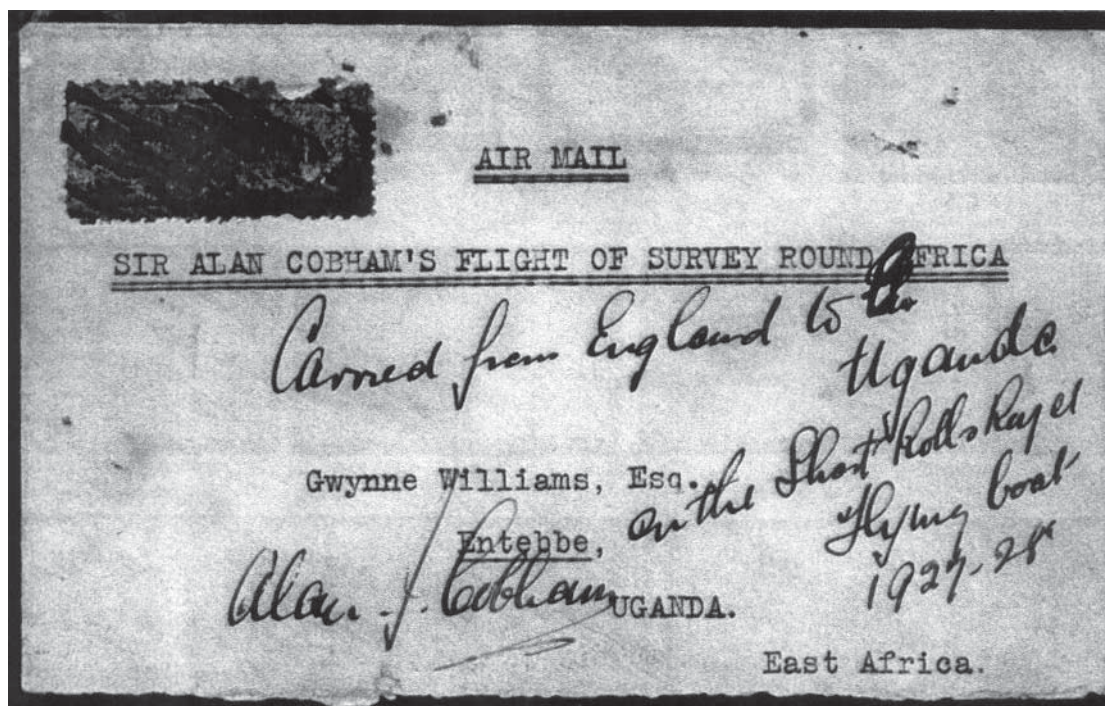 AIR MAIL
SIR ALAN COBHAM'S FLIGHT OF SURVEY ROUND AFRICA
Carried from England to
Uganda
on the Short Rolls Royce
Flying boat
1927-28
Gwynne Williams, Esq.
Entebbe,
Alan J. Cobham
UGANDA.
East Africa.